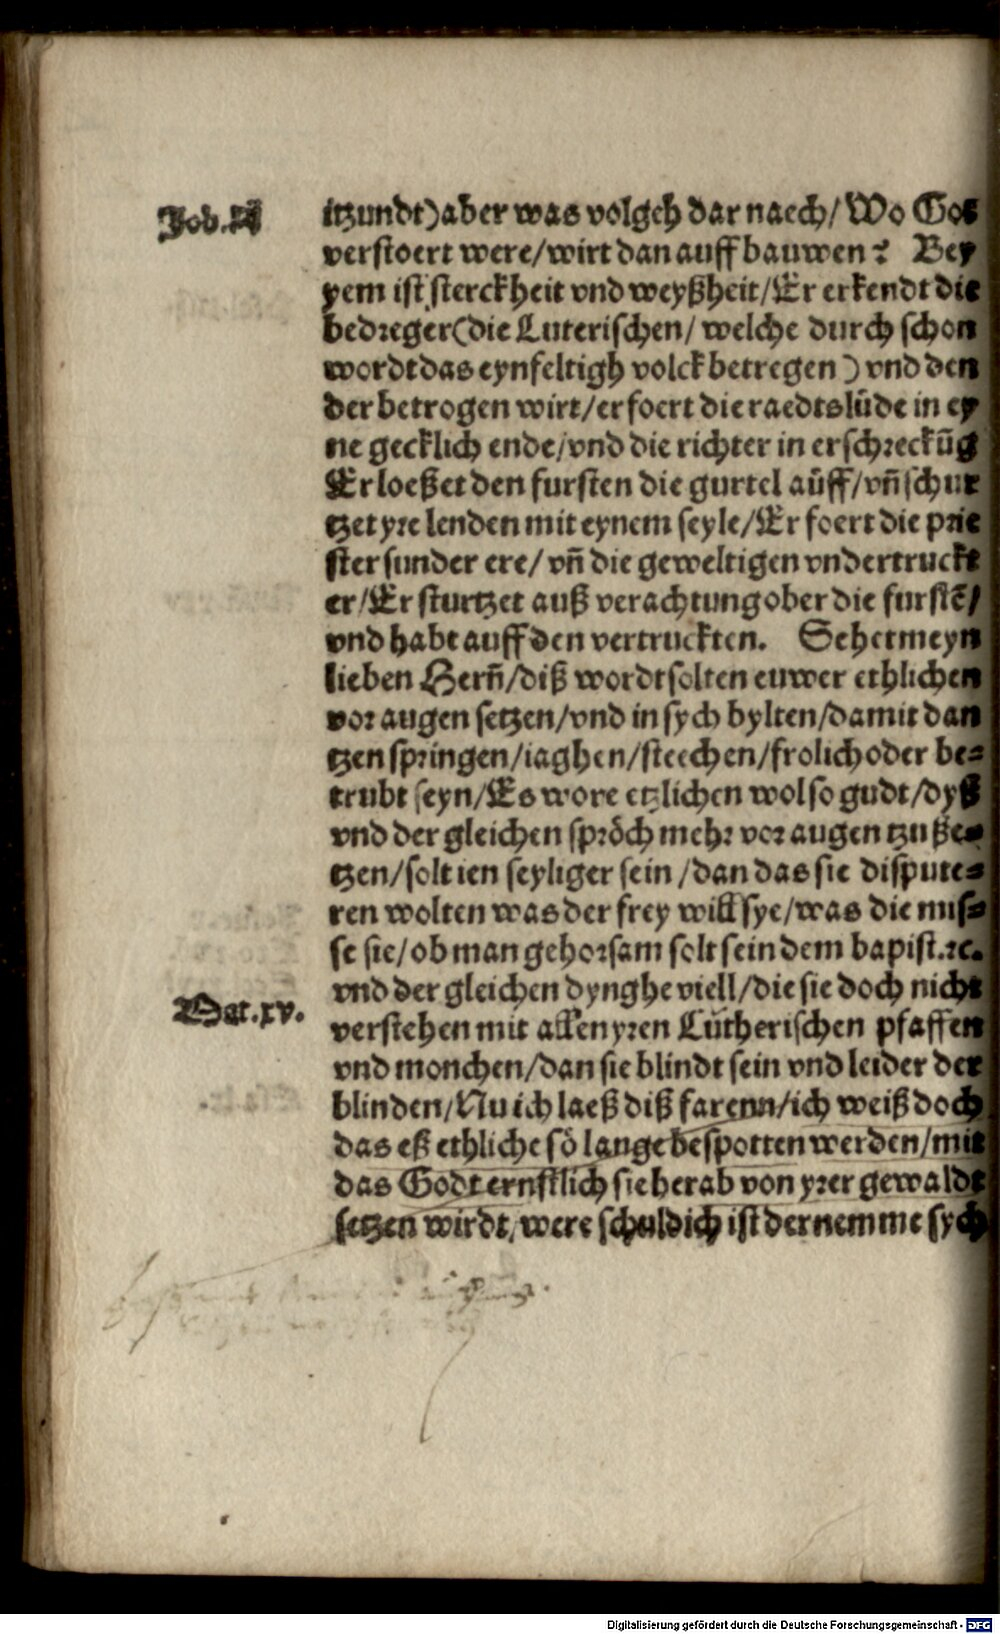 Job. xij
itzundt) aber was volgeh dar naech / Wo Got
verstoert were / wirt dan auff bauwen? Bey
yem ist sterckheit vnd weyßheit / Er erkendt die
bedreger (die Luterischen / welche durch schon
wordt das eynfeltigh volck betregen) vnd den
der betrogen wirt / er foert die raedtslüde in ey
ne gecklich ende / vnd die richter in erschreckūg
Er loeßet den fursten die gurtel aüff / vñ schur
tzet yre lenden mit eynem seyle / Er foert die prie
ster sunder ere / vñ die geweltigen vndertruckt
er / Er sturtzet auß verachtung ober die furstē /
vnd habt auff den vertruckten. Sehet meyn
lieben Herñ / diß wordt solten euwer ethlichen
vor augen setzen / vnd in sych bylten / damit dan
tzen springen / iaghen / steechen / frolich oder be=
trubt seyn / Es wore etzlichen wol so gudt / dyß
vnd der gleichen spröch mehr vor augen tzu ße=
tzen / solt ien seyliger sein / dan das sie dispute=
ren wolten was der frey will sye / was die mis=
se sie / ob man gehorsam solt sein dem bapist. ꝛc.
vnd der gleichen dynghe viell / die sie doch nicht
Mat. xv.
verstehen mit allen yren Lütherischen pfaffen
vnd monchen / dan sie blindt sein vnd leider der
blinden / Nu ich laeß diß farenn / ich weiß doch
das eß ethliche sö lange bespotten werden / mit
das Godt ernstlich sie herab von yrer gewaldt
setzen wirdt, were schuldich ist der nemme sych
Digitalisierung gefördert durch die Deutsche Forschungsgemeinschaft - DFG